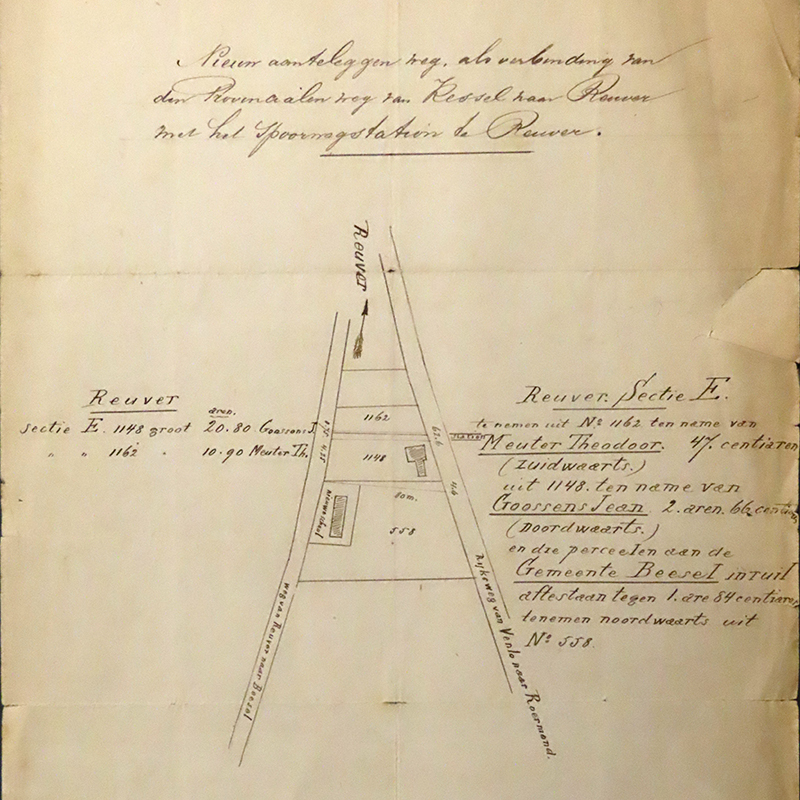 Nieuw aanteleggen weg, als verbinding van
den Provincialen weg van Kessel naar Reuver
met het Spoorwegstation te Reuver.
Reuver
Reuver
aren.
Sectie E. 1148 groot 20.80 Goossens J.
" " 1162 " 10.90 Meuter Th.
1162
1148
558
nieuwe school
weg van Reuver naar Beesel
Rijksweg van Venlo naar Roermond.
Reuver. Sectie E.
te nemen uit No 1162 ten name van
Meuter Theodoor. 47. centiaren
(Zuidwaarts.)
uit 1148. ten name van
Goossens Jean 2. aren. 66 centiaren
(Noordwaarts.)
en die perceelen aan de
Gemeente Beesel in ruil
aftestaan tegen 1. are 84 centiaren
tenemen noordwaarts uit
No 558.